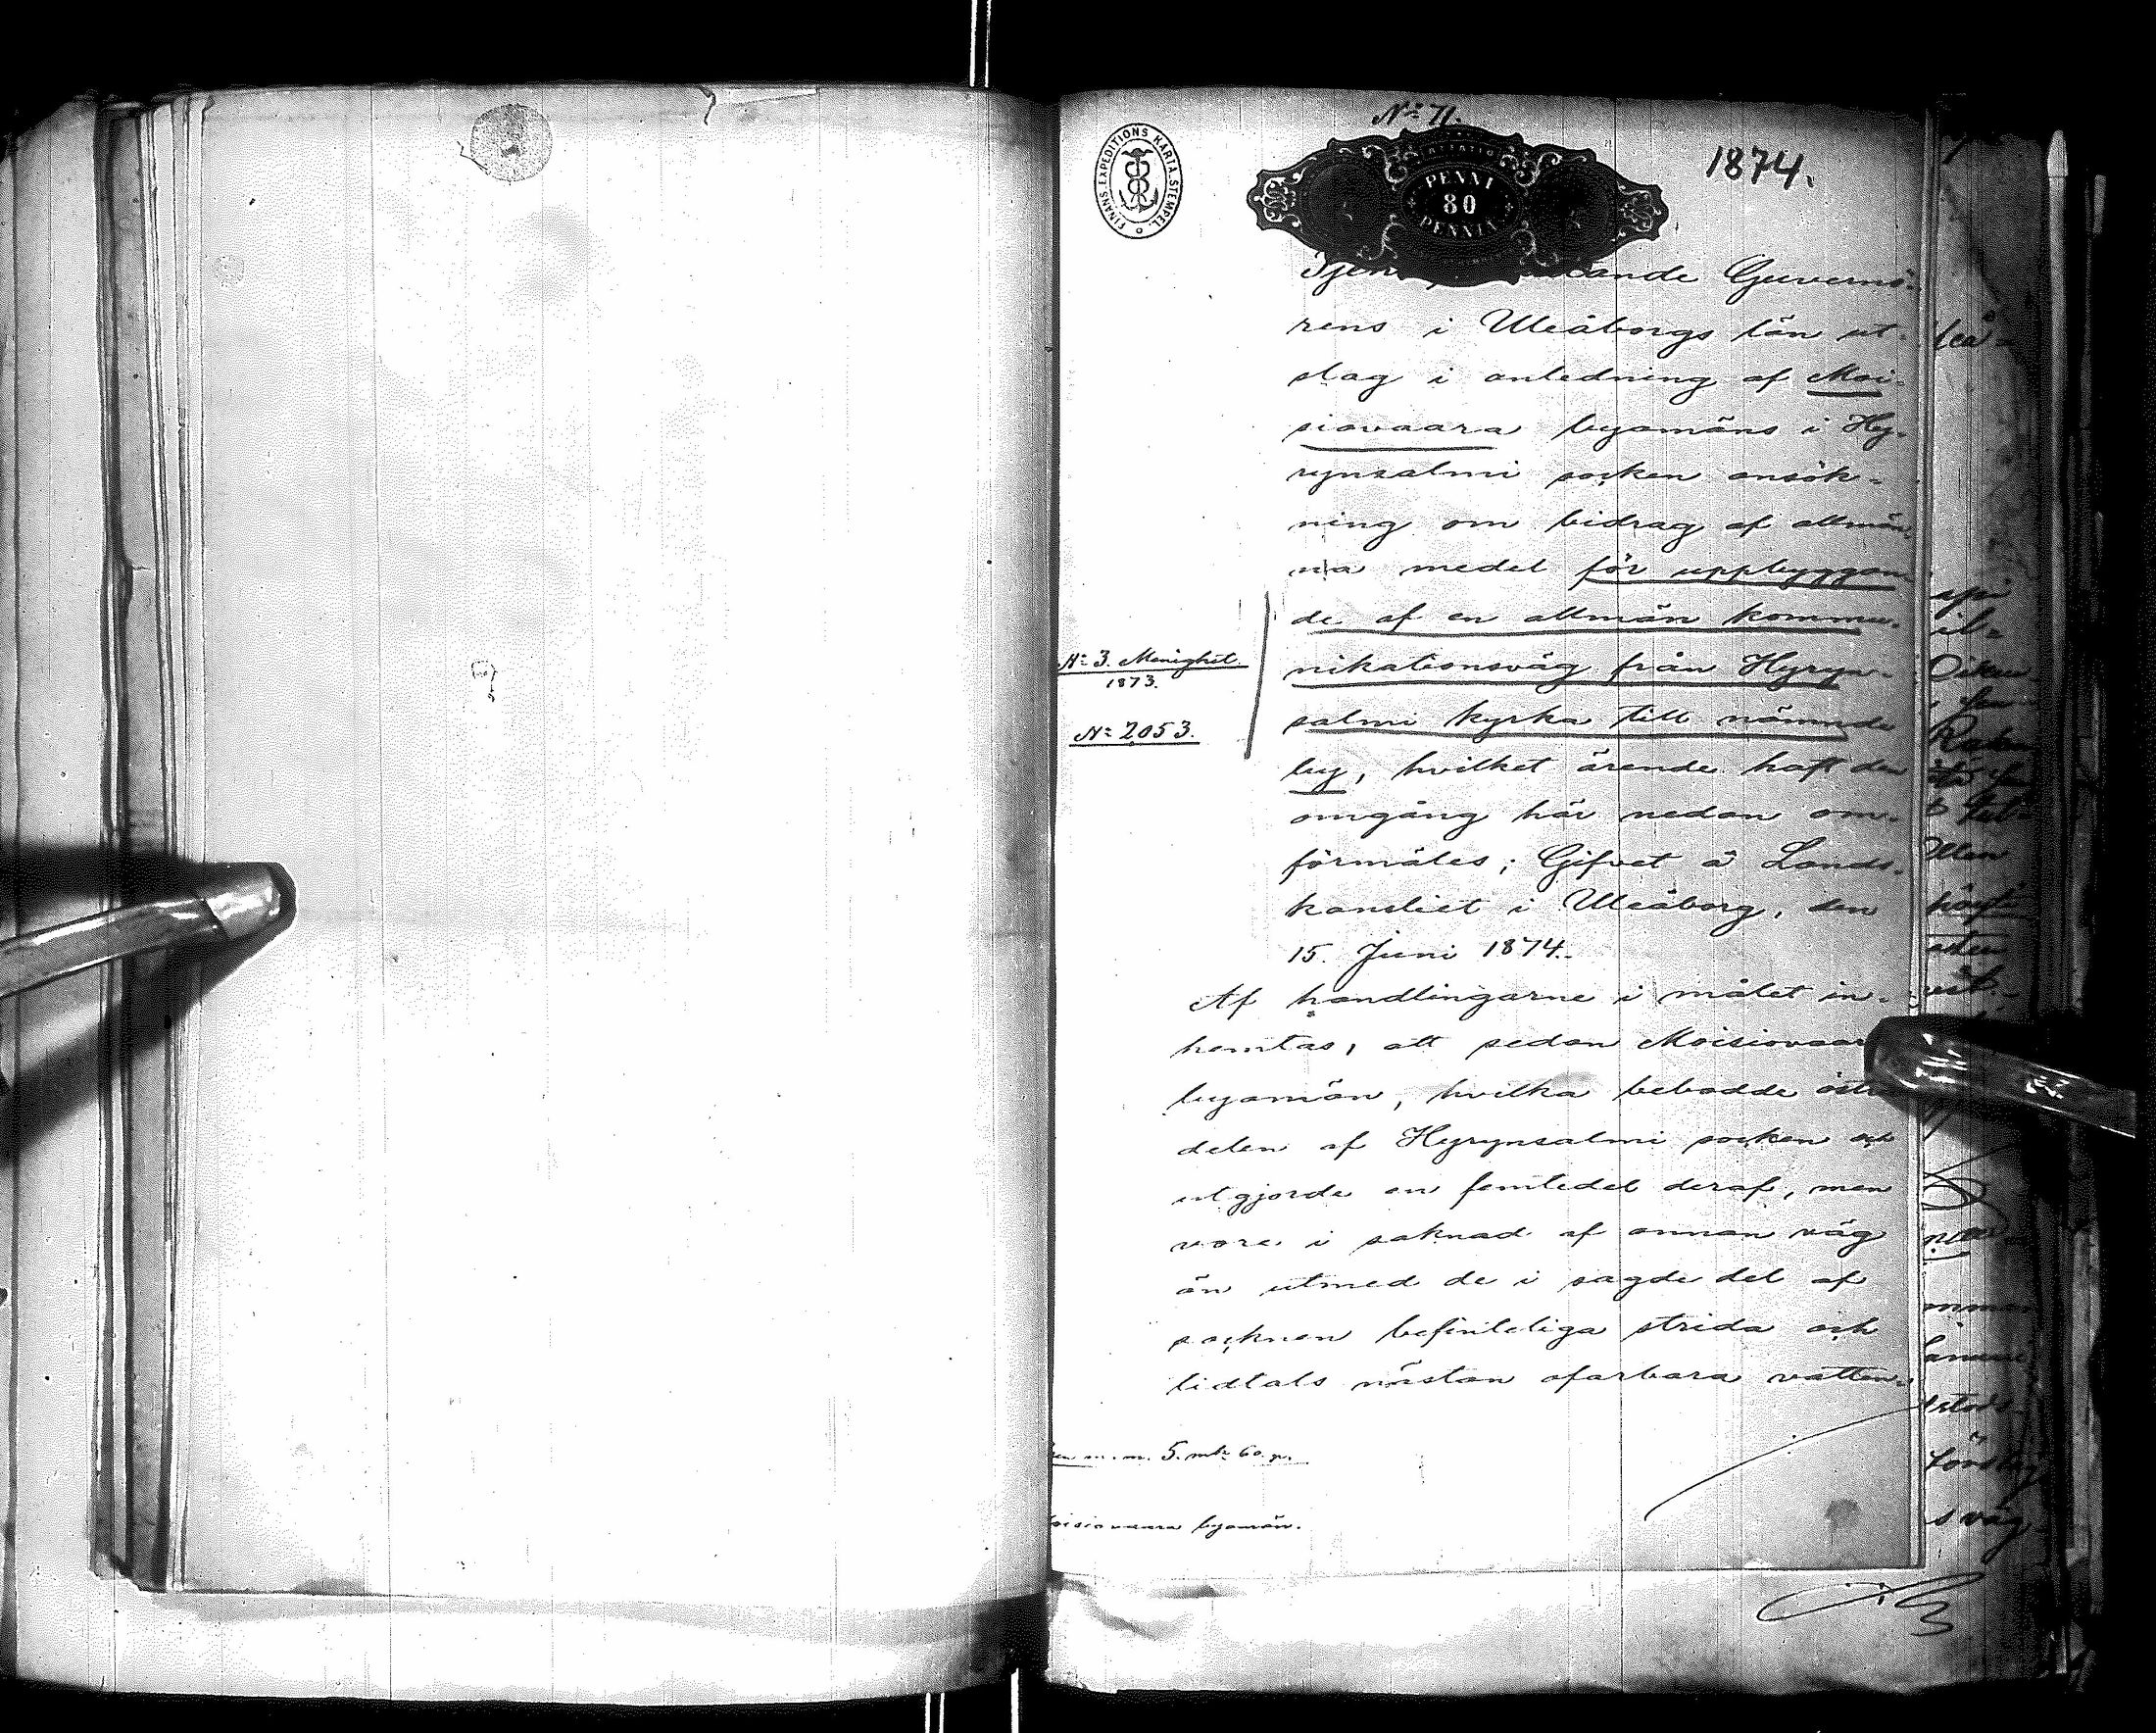 № 71.
1874.
FINANS EXPEDITIONS KARTA STEMPEL.
PENNI
80
PENNIÄ
Guvernö-
rens i Uleåborgs län ut-
slag i anledning af Moi-
siovaara byamäns i Hy-
rynsalmi socken ansök-
ning om bidrag af allmän-
na medel för uppbyggan-
de af en allmän kommu-
nikationsväg från Hyryn-
salmi kyrka till nämnde
by, hvilket ärende haft den
omgång här nedan om-
förmäles; Gifvet å Lands-
kansliet i Uleåborg, den
15. Juni 1874.
№ 3. Menighet.
1873.
№ 2053.
Af handlingarne i målet in-
hemtas, att sedan Moisiovaara
byamän, hvilka bebodde östra
delen af Hyrynsalmi socken och
utgjorde en femtedel deraf, men
vore i saknad af annan väg
än utmed de i sagde del af
socknen befinteliga strida och
tidtals nästan ofarbara vatten-
m.m. 5. mk 60 p.
oisiovaara byamän.